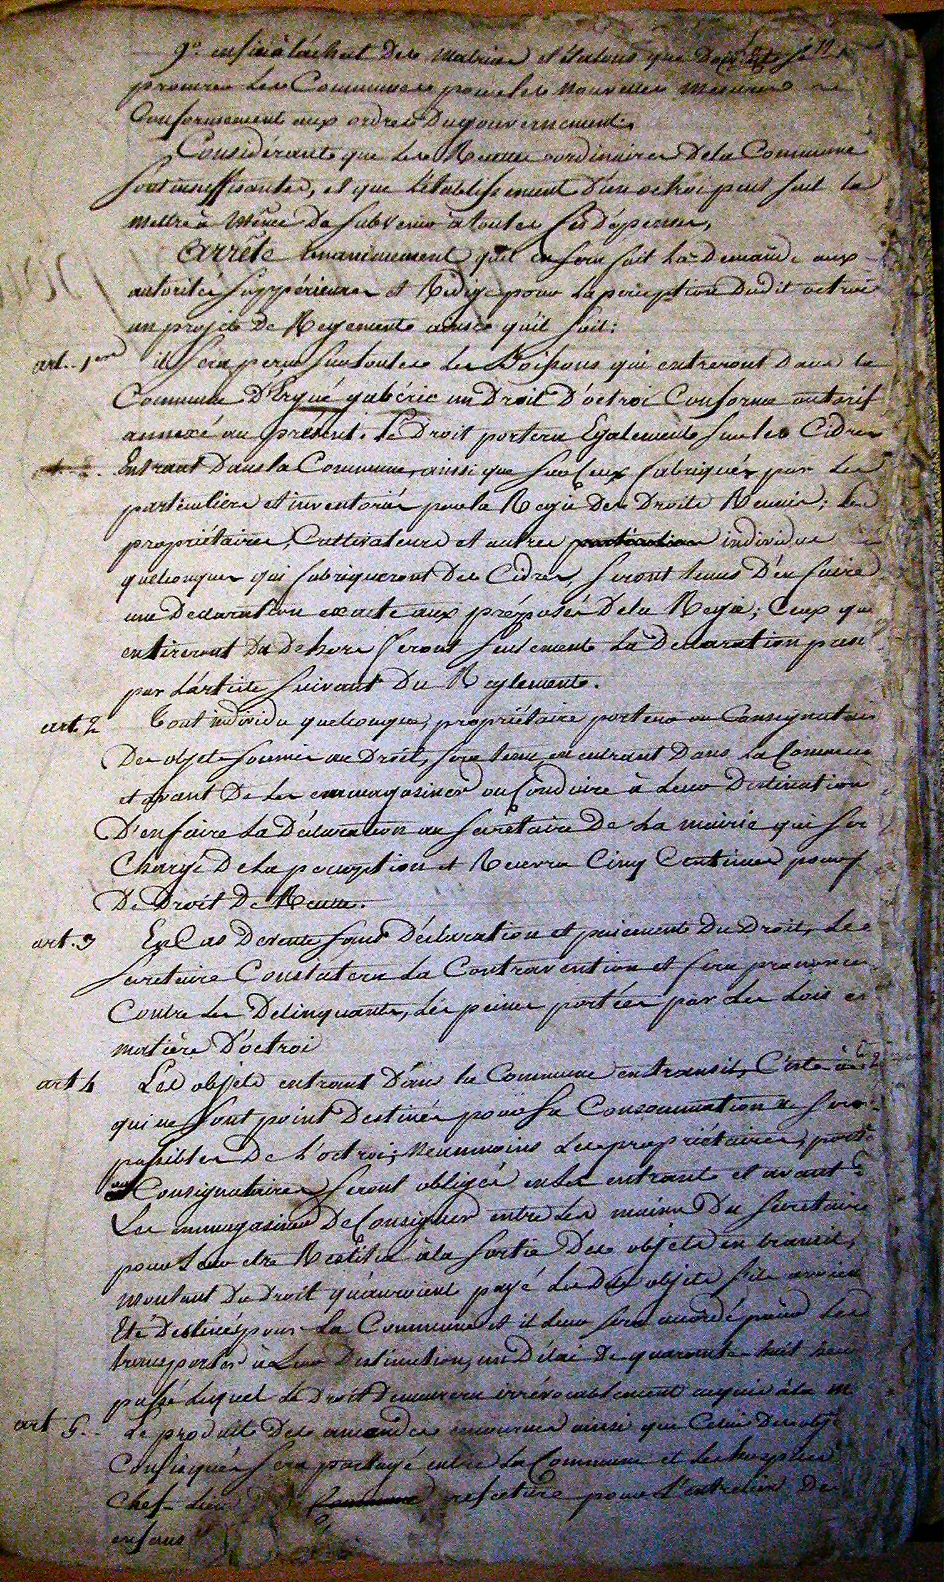 9° enfin à l'achat des matrices et étalons que doivent se
procurer les Communes pour les nouvelles mesures
Conformement aux ordres du gouvernement.
Considerant que les Revenus ordinaires de la Commune
sont insuffisantes, et que l'etablissement d'un octroi peut seul la
mettre à même de subvenir à toutes ses dépenses,
Arrête unanimement qu'il en sera fait la demande aux
autorités suppérieures et Redige pour la perception dudit octroi
un projet de Reglement ainsi qu'il suit:
art. 1er il sera perçu sur toutes les Boissons qui entreront dans la
Commune D'Ergué gabéric un Droit D'octroi Conforme au tarif
annexé au présent. le Droit portera Egalement sur les Cidres
Entrant dans la Commune, ainsi que sur Ceux fabriqués par les
particuliers et inventoriés par la Regie des Droits Reunis; les
propriétaires, Cultivateurs et autres individus
quelconques qui fabriqueront des Cidres, seront tenus D'en faire
une Declaration exacte aux préposés de la Regie; Ceux qui
en tireront du dehors feront seulement la Declaration
par l'article suivant du Reglement.
art. 2 Tout individu quelconque, propriétaire porteur ou Consignataire
Des objets soumis au Droit, sera tenu, en entrant dans la Commune
et avant De les emmagasiner ou Conduire à leur Destination
D'en faire la Déclaration au secrétaire De la mairie qui sera
Chargé De la perception et Recevra Cinq Centimes pour
De Droit De Recette.
art. 3 En Cas De vente sans Déclaration et paiement Du Droit, Le
secretaire Constatera la Contravention et sera prononcé
Contre les Delinquants, les peines portées par les lois en
matière D'octroi
art 4 Les objets entrant Dans la Commune en transit, C'est à
qui ne sont point Destinés pour sa Consommation ne seront
passibles De l'octroi; Neanmoins les propriétaires,
ou Consignataires seront obligés en les entrant et avant
Les emmagasiner De Consigner entre les mains Du secretaire
pour leur etre Restitué à la sortie Des objets en transit,
montant Du Droit qu'auroient payé les dits objets s'ils avoient
Eté Destinés pour la Commune et il leur sera accordé pour les
transporter à leur Destination, un Délai De quarante huit
passé lequel le Droit Demeurera irrévocablement acquis à la
art 5. Le produit des amendes encourues ainsi que Celui Des objets
Confisqués sera partagé entre la Commune et
Chef-Lieu préfecture pour l'entretien Des
enfans